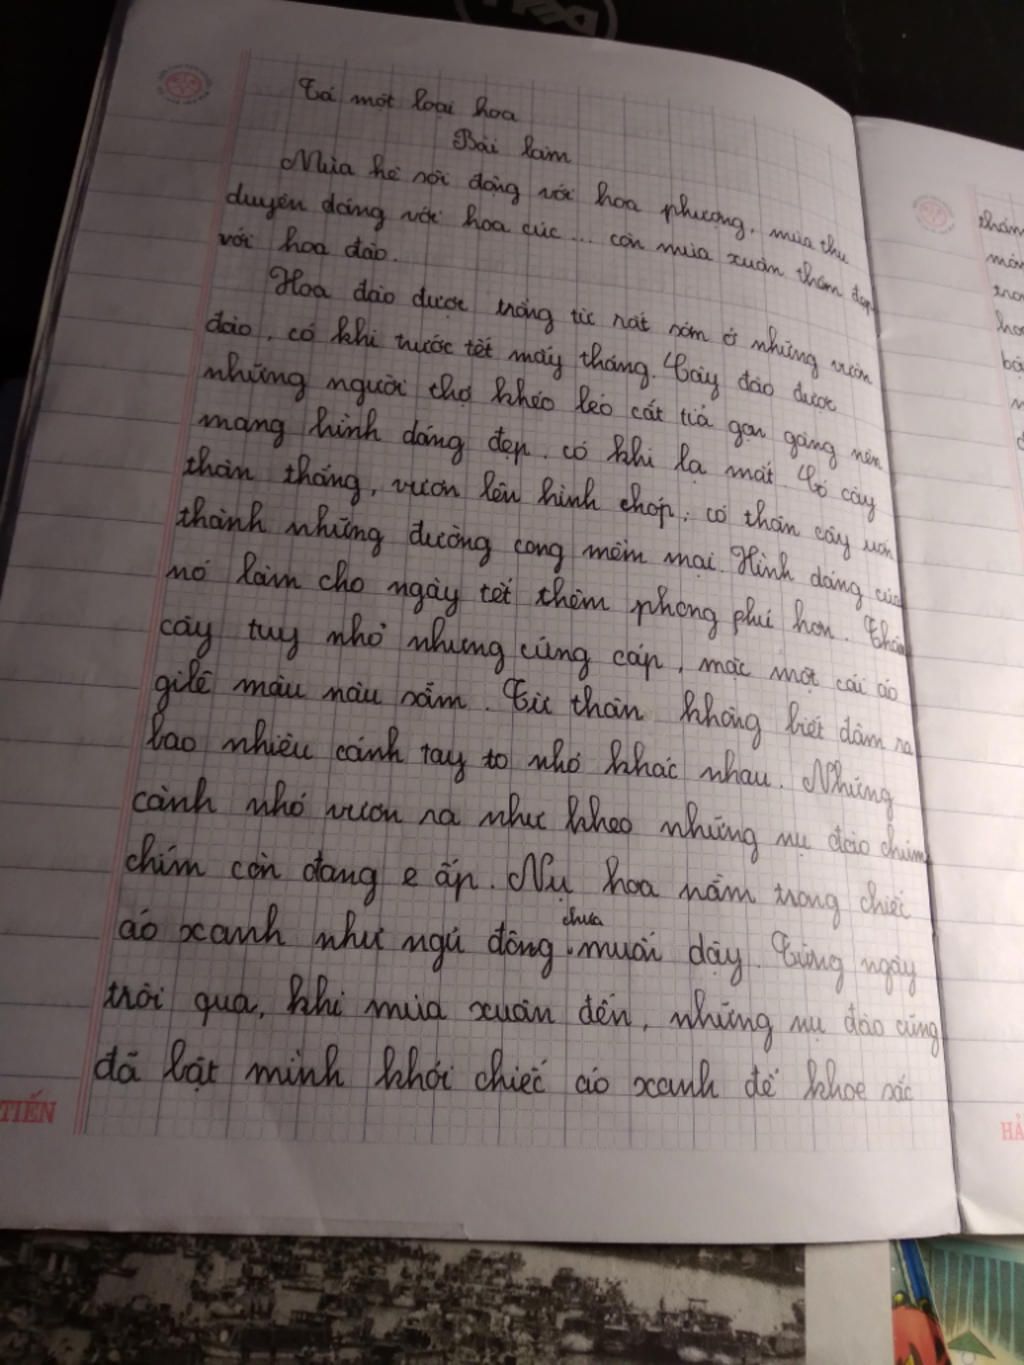 Tả một loại hoa
Bài làm
Mùa hè sôi động với hoa phượng, mùa thu
duyên dáng với hoa cúc... còn mùa xuân thắm đẹp
với hoa đào.
Hoa đào được trồng từ rất sớm ở những vườn
đào, có khi trước tết mấy tháng. Cây đào được
những người thợ khéo léo cắt tỉa gọn gàng nên
mang hình dáng đẹp, có khi lạ mắt. Có cây
thân thẳng, vươn lên hình chóp; có thân cây uốn
thành những đường cong mềm mại. Hình dáng của
nó làm cho ngày tết thêm phong phú hơn. Thân
cây tuy nhỏ nhưng cứng cáp, mặc một cái áo
gilê màu nâu sẫm. Từ thân không biết đâm ra
bao nhiêu cánh tay to nhỏ khác nhau. Những
cành nhỏ vươn ra như kheo những nụ đào chúm
chím còn đang e ấp. Nụ hoa nằm trong chiếc
áo xanh như ngủ đông chưa muốn dậy. Từng ngày
trôi qua, khi mùa xuân đến, những nụ đào cũng
đã bật mình khỏi chiếc áo xanh để khoe sắc
TIẾN
HẢ